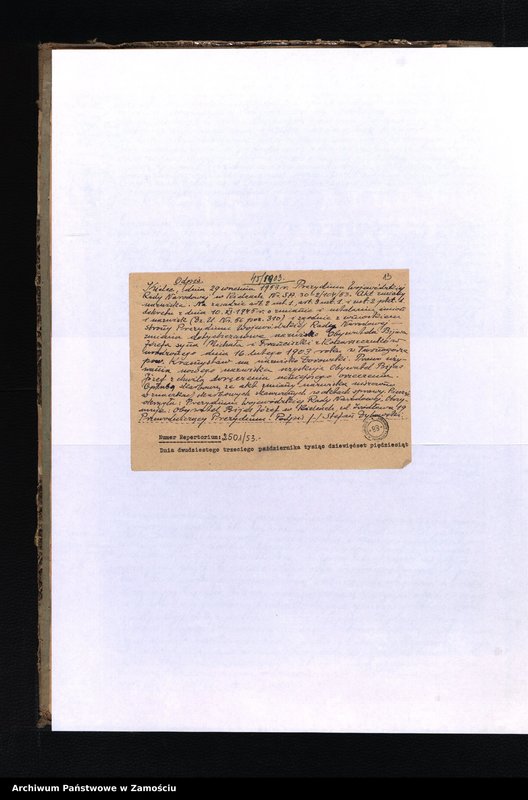 Odpis 45/1903. 13
Kielce, dnia 29 września 1953 r. Prezydium Wojewódzkiej
Rady Narodowej w Kielcach Nr. S.A. Akt zmiany
nazwiska. Na zasadzie art. 2 ust. 1, art. 3 ust. 1 i ust. 2 pkt. 1
dekretu z dnia 10.XI.1945 r. o zmianie i ustalaniu imion
i nazwisk (Dz. U. Nr. 56 poz. 310) i zgodnie z wnioskiem
strony Prezydium Wojewódzkiej Rady Narodowej
zmienia dotychczasowe nazwisko Obywatela
Józefa syna i Franciszki z
urodzonego dnia 16 lutego 1903 roku w
pow. Krasnystaw na nazwisko Prawo uży-
wania nowego nazwiska uzyskuje Obywatel
Józef z chwilą doręczenia niniejszego orzeczenia.
Opłatę skarbową za akt zmiany nazwiska uiszczono
w znaczkach skarbowych skasowanych na aktach sprawy. Pieczęć
okrągła. Prezydium Wojewódzkiej Rady Narodowej. Otrzy-
muje: Obywatel Józef w Kielcach, ul.
Przewodniczący Prezydium: Podpis /-/ Stefan
Numer Repertorium: 2501/53.-
Dnia dwudziestego trzeciego października tysiąc dziewięćset pięćdziesiąt
Archiwum Państwowe w Zamościu